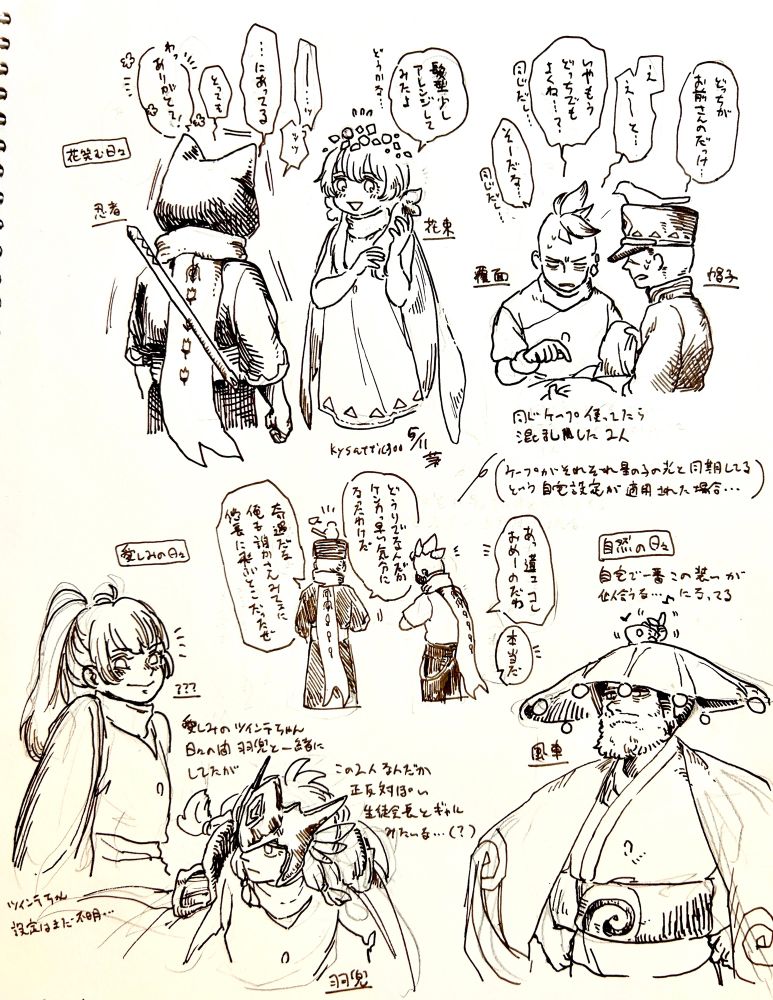 髪型少し
アレンジして
みたよ
どうかな…
…にあってる
とっても
わっ
ありがとて
花笑む日々
忍者
花束
どっちが
お前さんのだっけ…
え
えーと…
いやもう
どっちでも
よくね…?
同じだし…
そーだな…
同じだし…
覆面
帽子
同じケープ使ってたら
混乱した2人
5/11
(ケープがそれぞれ星の子の光と同期してる
という自宅設定が適用された場合…)
あっ違ェコレ
おめーのだわ
本当だ
どうりでなんだか
ケンカっ早い気分に
なったわけだ
奇遇だな
俺ぁ誰かさんみてぇに
愛しみの日々
???
愛しみのツインテちゃん
日々の間羽兜と一緒に
してたが
この2人なんだか
正反対ぽい
生徒会長とギャル
みたいな…(?)
ツインテちゃん
設定はまだ不明…
羽兜
自然の日々
自宅で一番この装いが
似合うな…♪になってる
風車